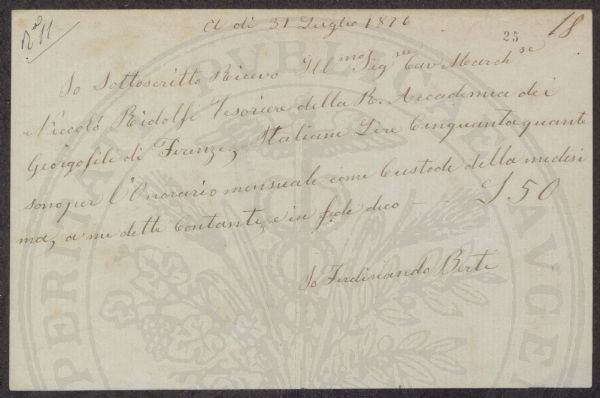 N° 11
A di 31 Luglio 1876
25
18
Io Sottoscritto Ricevo Ill mo Sig re Cav March se
Niccolò Ridolfi Tesoriere della R. Accademia dei
Georgofili di Firenze, Italiane Lire Cinquanta quante
sono per l'Onorario mensuale come Custode della medesi
ma, a me dette Contante, e in fede dico — £ 50
Io Ferdinando Berti
PUBLICAE
AUGEN
PERITA